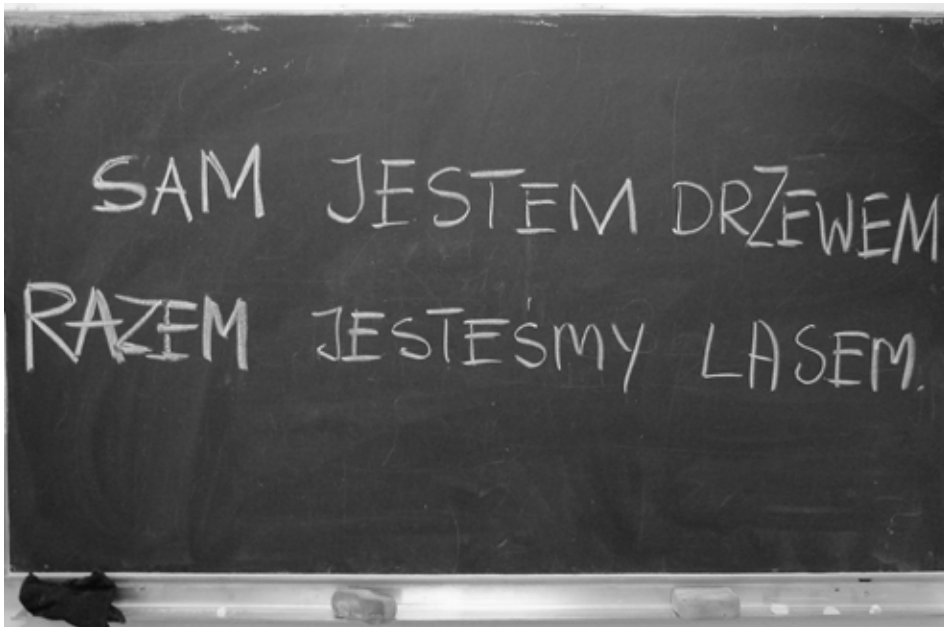 SAM JESTEM DRZEWEM
RAZEM JESTEŚMY LASEM.